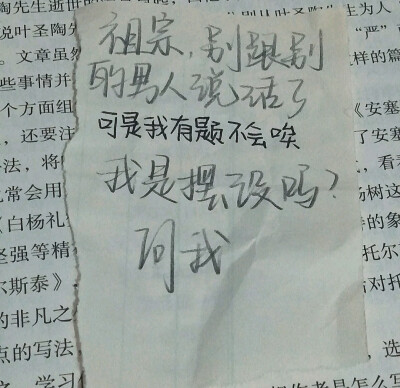 祖宗,别跟别
的男人说话了
可是我有题不会唉
我是摆设吗?
问我
陶先生逝世的
说叶圣陶
文章虽然
些事情并
个方面组
,还要注
法,将
常会用
《白杨礼
坚强等精
尔斯泰》
的非凡之
点的写法
学习
生为人
"严"
样的篇
《安塞
了安塞
,看
杨树这
特的象
托尔
后对托
,选
是怎么写